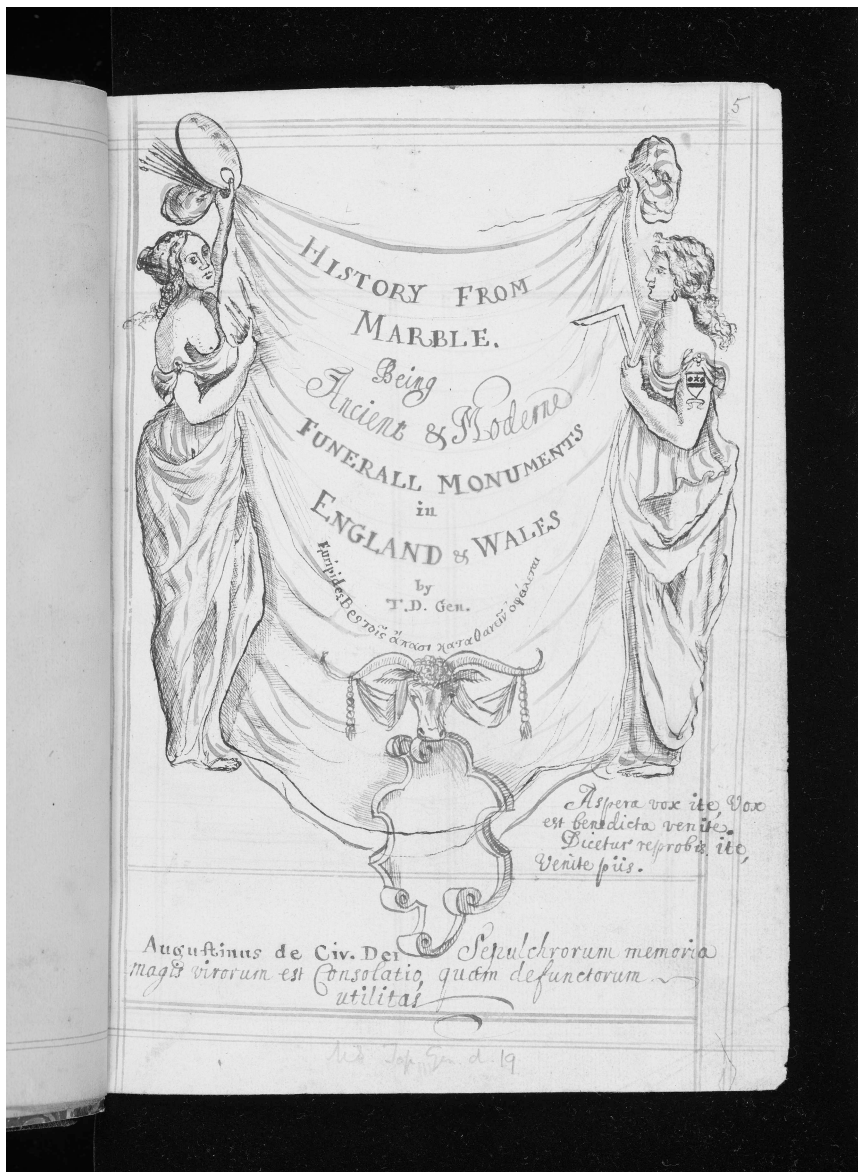 5
HISTORY FROM
MARBLE.
Being
Ancient & Moderne
FUNERALL MONUMENTS
in
ENGLAND & WALES
by
T.D. Gen.
Euripides
Aspera vox ite, Vox
est benedicta venite.
Dicetur reprobis ite,
Venite piis.
Augustinus de Civ. Dei. Sepulchrorum memoria
magis vivorum est Consolatio, quam defunctorum
utilitas
Top. Gen. d. 19